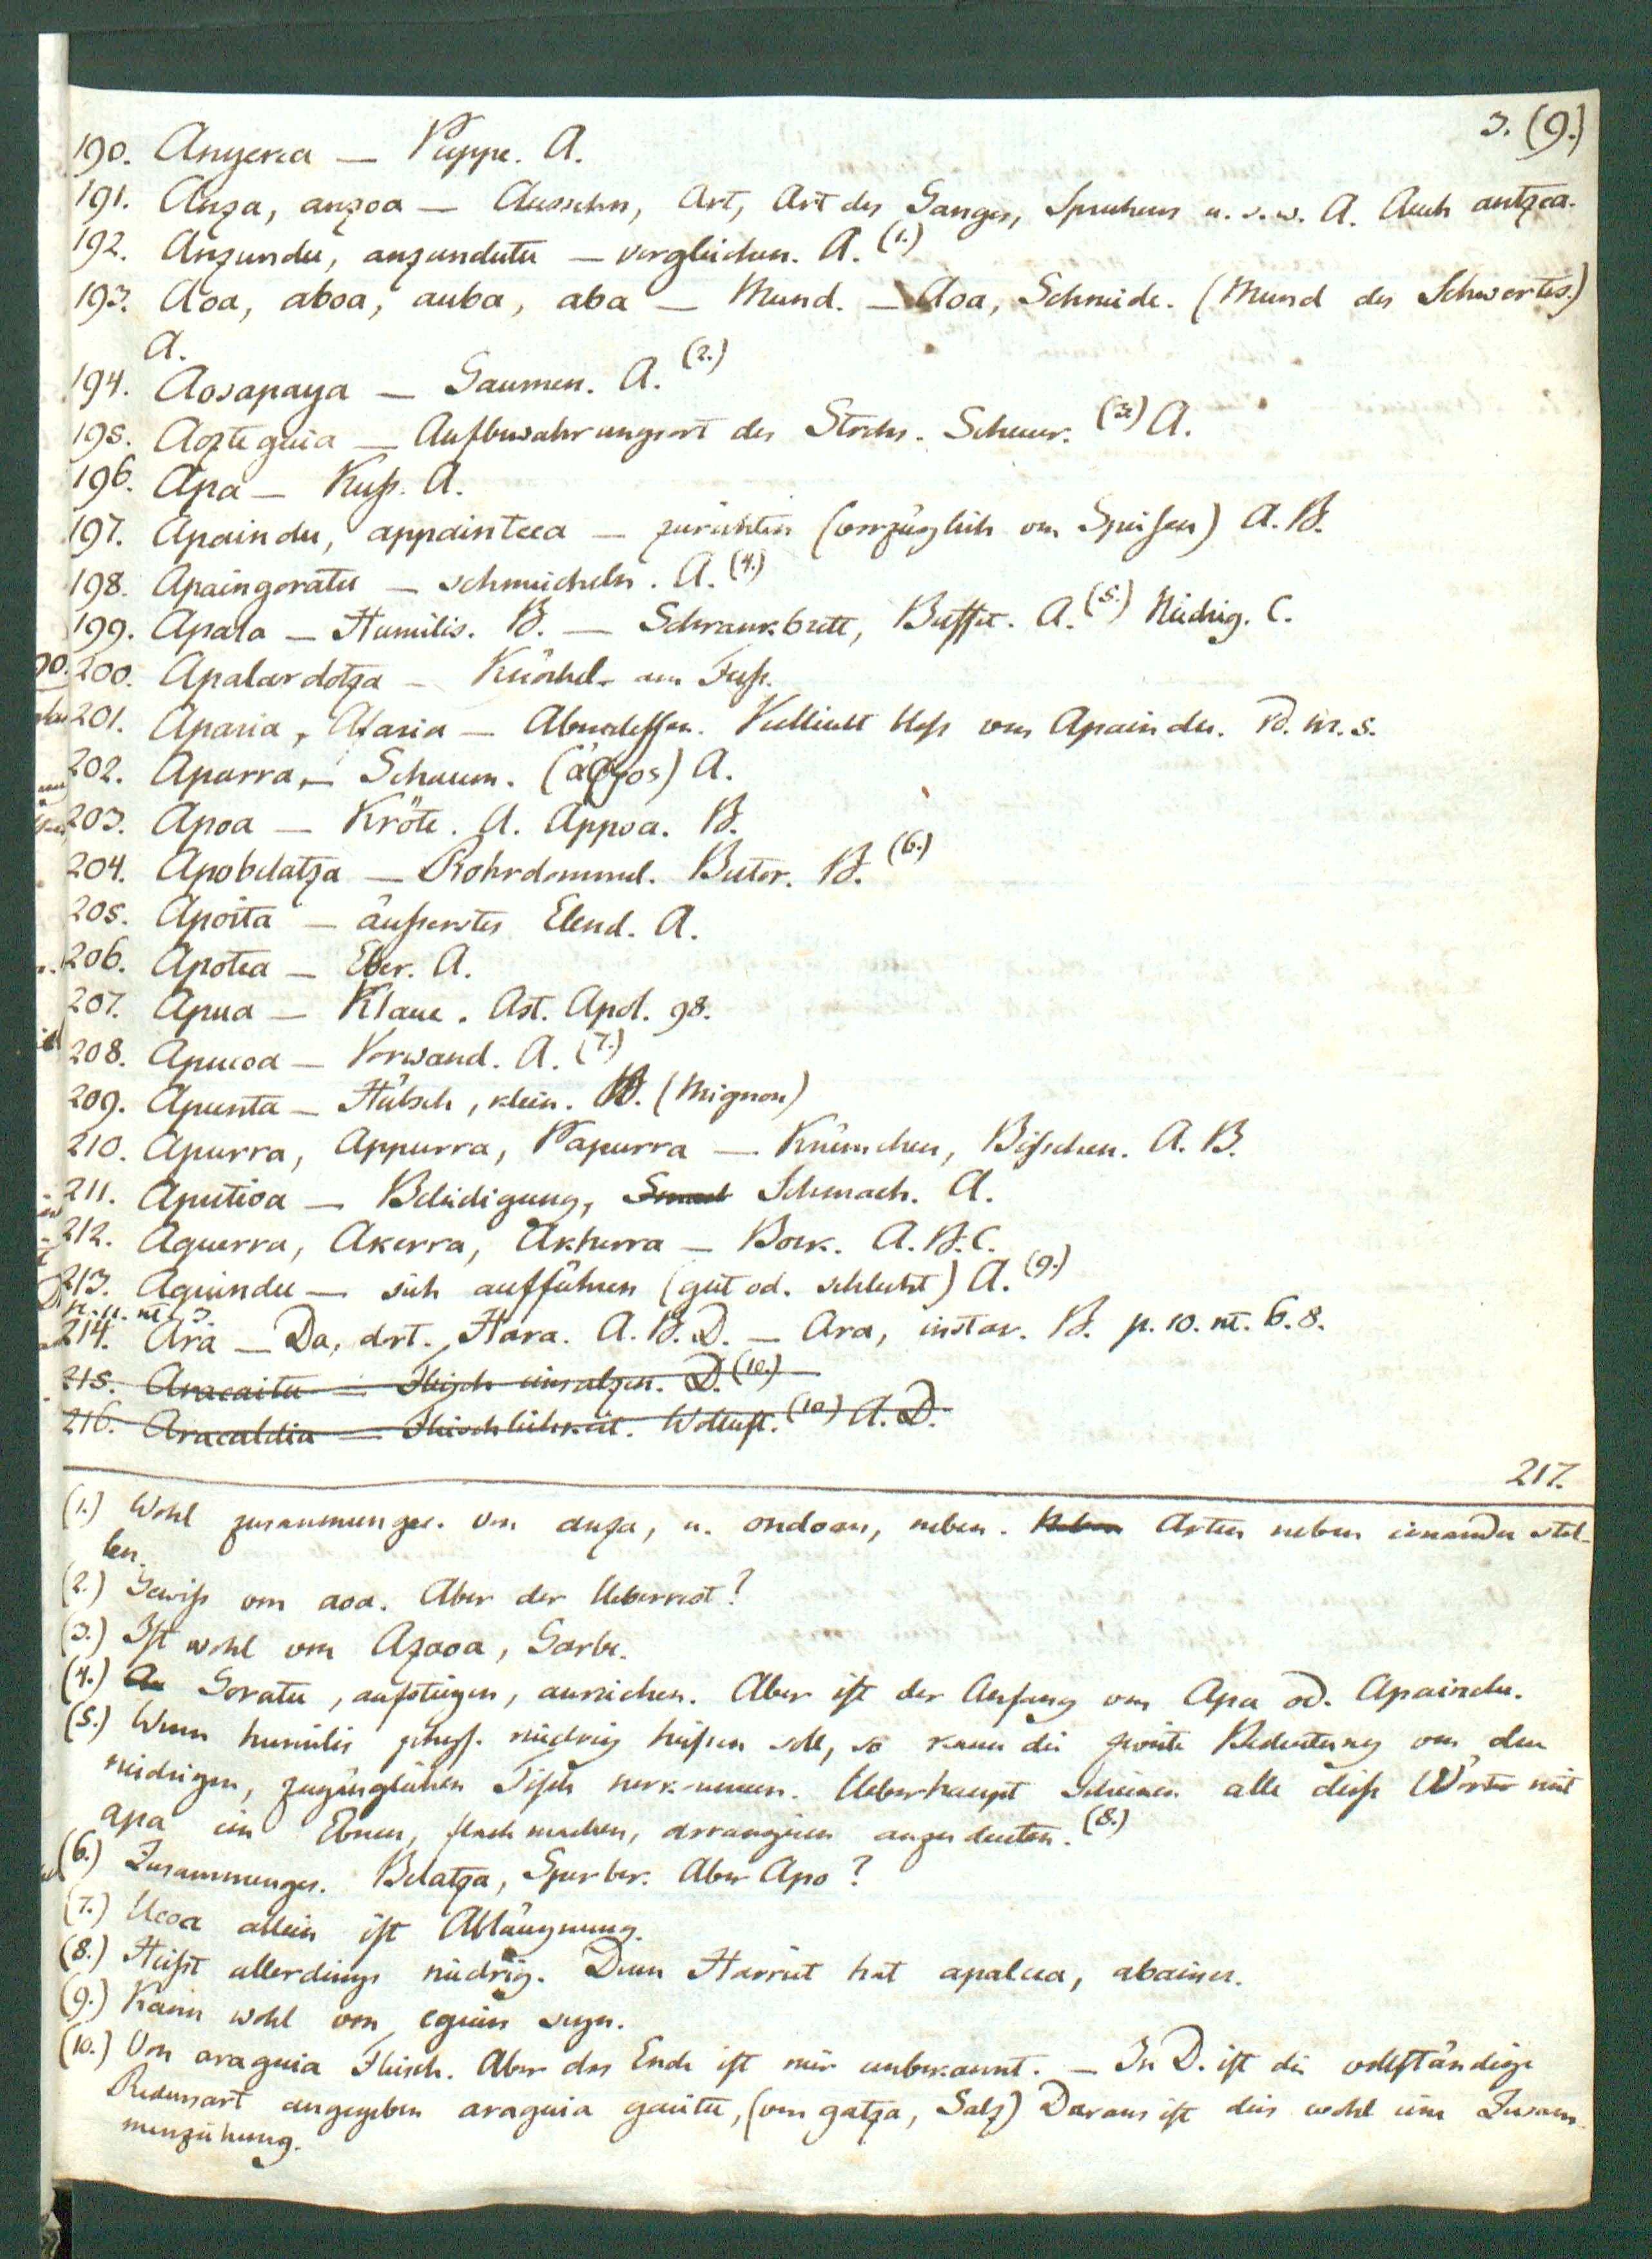 3. (9.)
190. Anyerea — Puppe. A.
191. Anza, anzoa — Aussehn, Art, Art des Ganges, Sprechens u. s. w. A. Auch antzea.
192. Anzundu, anzundutu — vergleichen. A. (1.)
193. Aoa, aboa, auba, aba — Mund. — Aoa, Schneide. (Mund des Schwertes.)
A.
194. Aosapaya — Gaumen. A. (2.)
195. Aozteguia — Aufbewahrungsort des Strohs. Scheuer. (3.) A.
196. Apa — Kuß. A.
197. Apaindu, appaintcea — zurichten (vorzüglich von Speisen) A. B.
198. Apaingoratu — schmeicheln. A. (4.)
199. Apala — Humilis. B. — Schrankbrett, Buffet. A. (5.) Niedrig. C.
200. Apalardotza — Knöchel am Fuß.
201. Aparia, Afaria — Abendessen. Vielleicht bloß von Apaindu. V. nr. s.
202. Aparra, — Schaum. (ἀφρος) A.
203. Apoa — Kröte. A. Appoa. B.
204. Apobelatza — Rohrdommel. Butor. B. (6.)
205. Aposta — äußerstes Elend. A.
206. Apotea — Eber. A.
207. Apua — Klaue. Ast. Apol. 98.
208. Apucoa — Vorwand. A. (7.)
209. Apunta — Hübsch, klein. B. (Mignon)
210. Apurra, Appurra, Papurra — Krümchen, Bißchen. A. B.
211. Aputioa — Beleidigung, Schmach. A.
212. Aquerra, Akerra, Akherra — Bock. A. B. C.
213. Aquindu — sich aufführen (gut od. schlecht) A. (9.)
p. 11. nt. 3.
214. Ara — Da, dort. Hara. A. B. D. — Ara, instar. B. p. 10. nt. 6. 8.
215. Aracaitu — Fleisch einsalzen. D. (10.)
216. Aracaldia — Fleischlichkeit. Wollust. (10) A. D.
217.
(1.) Wohl zusammenges. von anza, u. ondoan, neben. Neben Arten neben einander stel-
len.
(2.) Gewiß von aoa. Aber der Ueberrest?
(3.) Ist wohl von Azaoa, Garbe.
(4.) Goratu, aufsteigen, anreichen. Aber ist der Anfang von Apa od. Apaindu.
(5.) Wenn humilis physs. niedrig heißen soll, so kann die zweite Bedeutung von den
niedrigen, zugänglichen Tisch herkommen. Ueberhaupt scheinen alle diese Wörter mit
apa ein Ebnen, flach machen, arrangiren anzudeuten. (8.)
(6.) Zusammenges. Belatza, Sperber. Aber Apo?
(7.) Ucoa allein ist Abläugnung.
(8.) Heißt allerdings niedrig. Denn Harriet hat apalcea, abaisser.
(9.) Kann wohl von eguin seyn.
(10.) Von araguia Fleisch. Aber das Ende ist mir unbekannt. — In D. ist die vollständige
Redensart angegeben araguia gacitu, (von gatza, Salz) Daraus ist dies wohl eine Zusam-
menziehung.